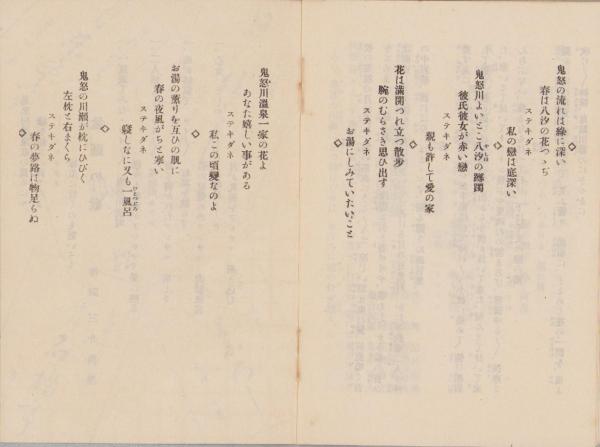 鬼怒の流れは緑に深い
春は八汐の花つゝぢ
ステキダネ
私の戀は底深い
◇
鬼怒川よいとこ八汐の躑躅
彼氏彼女が赤い戀
ステキダネ
親も許して愛の家
◇
花は満開つれ立つ散歩
腕のむらさき思ひ出す
ステキダネ
お湯にしみていたいこと
◇
鬼怒川温泉一家の花よ
あなた嬉しい事がある
ステキダネ
私この頃變なのよ
◇
お湯の薫りを互ひの肌に
春の夜風がちと寒い
ステキダネ
寝しなに又も一風呂
◇
鬼怒の川瀬が枕にひびく
左枕と右まくら
ステキダネ
春の夢路は物足らぬ
◇